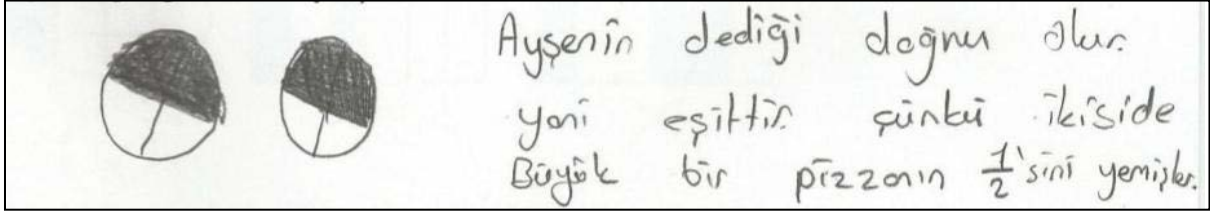 Ayşenin dediği doğru olur.
yani eşittir. çünkü ikiside
Büyük bir pizzanın 1/2'sini yemişler.